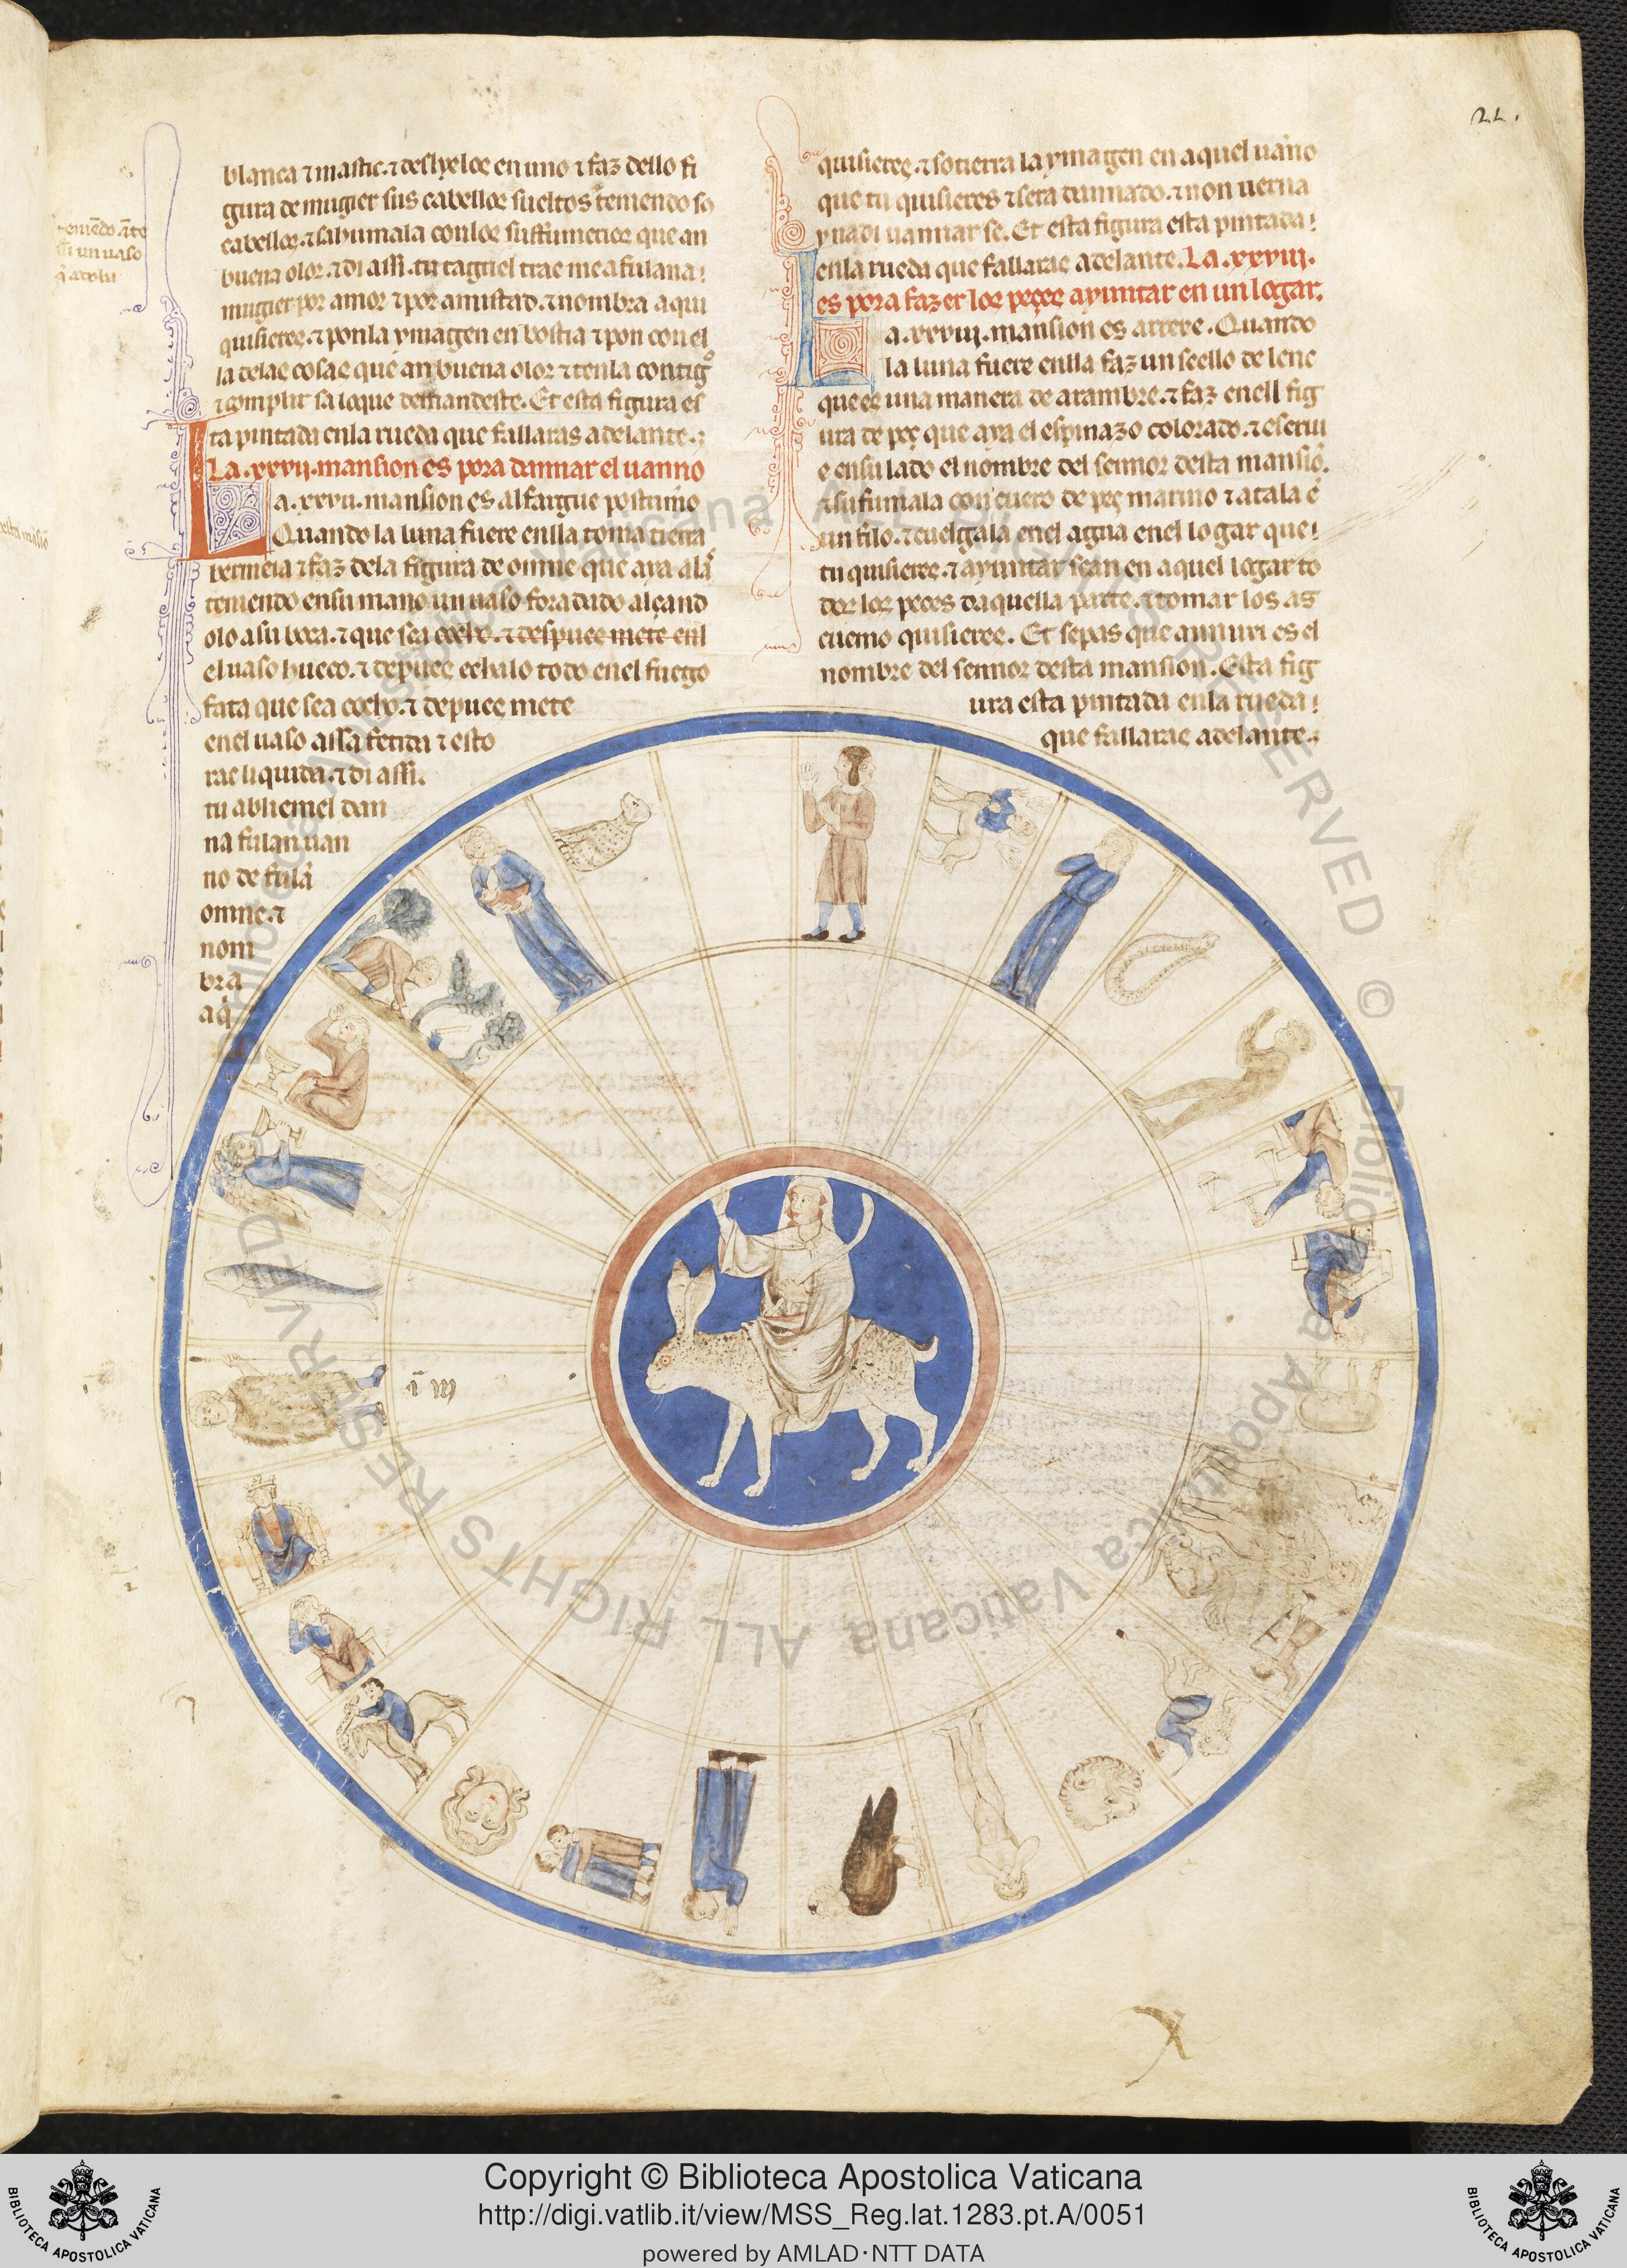 22.
blanca ⁊ mastic. ⁊ deslyelos en uno ⁊ faz dello fi
gura de mugier sus cabellos sueltos teniendo so
cabellos. ⁊ sahumala con los suffumerios que an
buena olor. ⁊ di assi. tu tagriel trae me a fulana
mugier por amor ⁊ por amistad. ⁊ nombra a qui
quisieres. ⁊ pon la ymagen en bostia ⁊ pon con el
la delas cosas que an buena olor ⁊ tenla contigo
⁊ complir sa lo que demandeste. Et esta figura es
ta pintada en la rueda que fallaras adelante.
La .xxvij. mansion es pora dannar el uanno
La .xxvij. mansion es alfargue postrimo
Quando la luna fuere enlla toma tierra
bermeia ⁊ faz dela figura de omne que aya alas
teniendo en su mano un uaso foradado alçand
olo a su boca. ⁊ que sea cocho. ⁊ despues mete enl
el uaso hueco. ⁊ depues echalo todo enel fuego
fata que sea cocho. ⁊ depues mete
enel uaso assa fetida ⁊ esto
rac liquida. ⁊ di assi.
tu abliemel dan
na fulan uan
no de fulã
omne. ⁊
nom
bra
a q̃
quisieres. ⁊ sotierra la ymagen en aquel uãno
que tu quisieres ⁊ sera dannado. ⁊ non uerna
y nadi uannar se. Et esta figura esta pintada
enla rueda que fallaras adelante. La .xxviij.
es pora fazer los peçes ayuntar en un logar.
La .xxviij. mansion es arrexe. Quando
la luna fuere enlla faz un seello de lene
que es una manera de arambre. ⁊ faz enell fig
ura de peç que aya el espinazo colorado. ⁊ escriu
e en su lado el nombre del sennor desta mansiõ.
⁊ sufumala con cuero de peç marino ⁊ atala ẽ
un filo. ⁊ cuelgala enel agua enel logar que
tu quisieres. ⁊ ayuntar sean en aquel logar to
dos los peces daquella parte. ⁊ tomar los as
cuemo quisieres. Et sepas que annuxi es el
nombre del sennor desta mansion. Esta fig
ura esta pintada enla rueda
que fallaras adelante.
ĩ iij
Copyright © Biblioteca Apostolica Vaticana
http://digi.vatlib.it/view/MSS_Reg.lat.1283.pt.A/0051
powered by AMLAD·NTT DATA
BIBLIOTECA APOSTOLICA VATICANA
BIBLIOTECA APOSTOLICA VATICANA
Biblioteca Apostolica Vaticana ALL RIGHTS RESERVED © Biblioteca Apostolica Vaticana ALL RIGHTS RESERVED ©